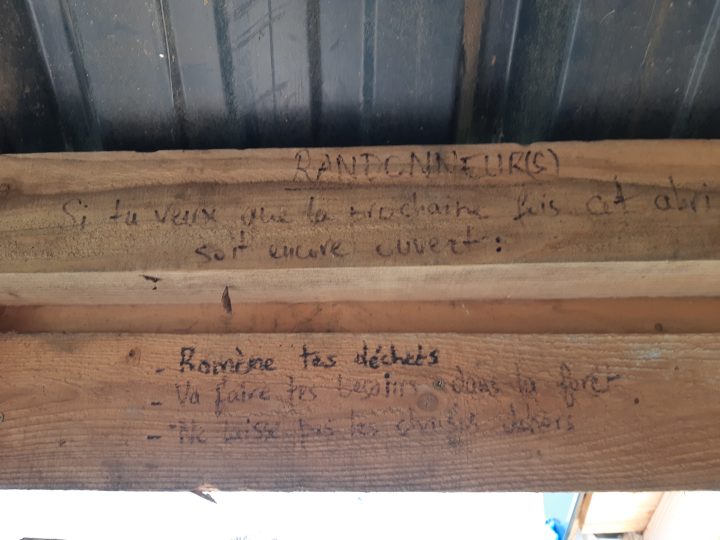 RANDONNEUR(S)
Si tu veux que la prochaine fois cet abri
soit encore ouvert :
- Ramène tes déchets
- Va faire tes besoins dans la foret
- Ne laisse pas les dehors